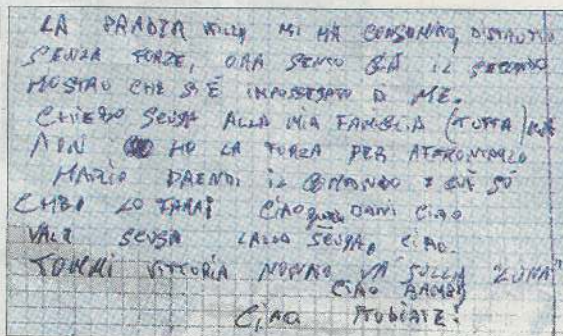 LA PRADZA KILLER MI HA CONSUMATO, DISTRUTTO
SENZA FORZE, ORA SENTO GIÀ IL SECONDO
MOSTRO CHE SI È IMPOSSESSATO DI ME.
CHIEDO SCUSA ALLA MIA FAMIGLIA (TUTTA) MA
NON HO LA FORZA PER AFFRONTARLO
MARIO PRENDI IL COMANDO E QUI SÒ
CHE LO FARAI CIAO DANI CIAO
VALE SCUSA LALLA SCUSA, CIAO.
TOMMI VITTORIA NONNO VÀ SULLA "LUNA"
CIAO BAMBI
CIAO STUDIATE!